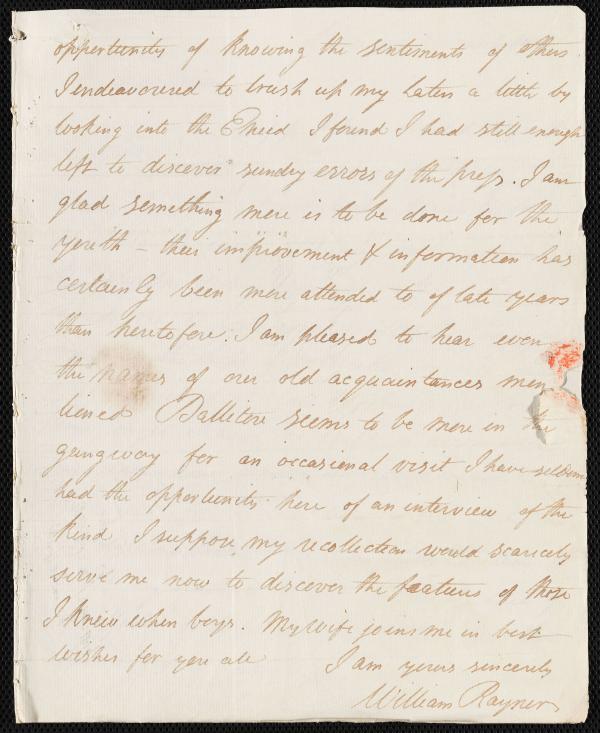 opportunity of knowing the sentiments of others
I endeavoured to brush up my Latin a little by
looking into the Eneid I found I had still enough
left to discover sundry errors of the press. I am
glad something more is to be done for the
youth – their improvement & information has
certainly been more attended to of late years
than heretofore. I am pleased to hear even
the names of our old acquaintances men
tioned Ballitore seems to be more in the
gangway for an occasional visit I have seldom
had the opportunity here of an interview of the
kind I suppose my recollection would scarcely
serve me now to discover the features of those
I knew when boys. My wife joins me in best
wishes for you all I am yours sincerely
William Rayner